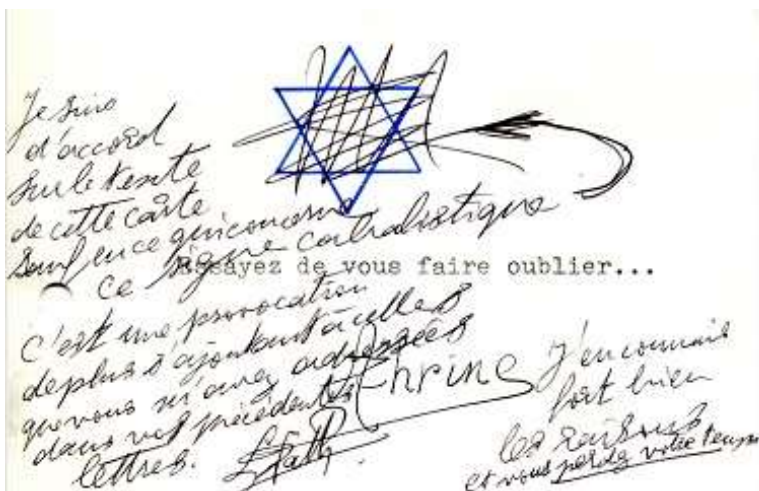 Je suis
d'accord
sur le texte
de cette carte
Sauf en ce qui concerne
ce signe cabalistique
Essayez de vous faire oublier...
C'est une provocation
de plus s'ajoutant à celles
que vous m'avez adressées
dans vos précédentes
lettres.
J'en connais
fort bien
les raisons
et vous perdez votre temps